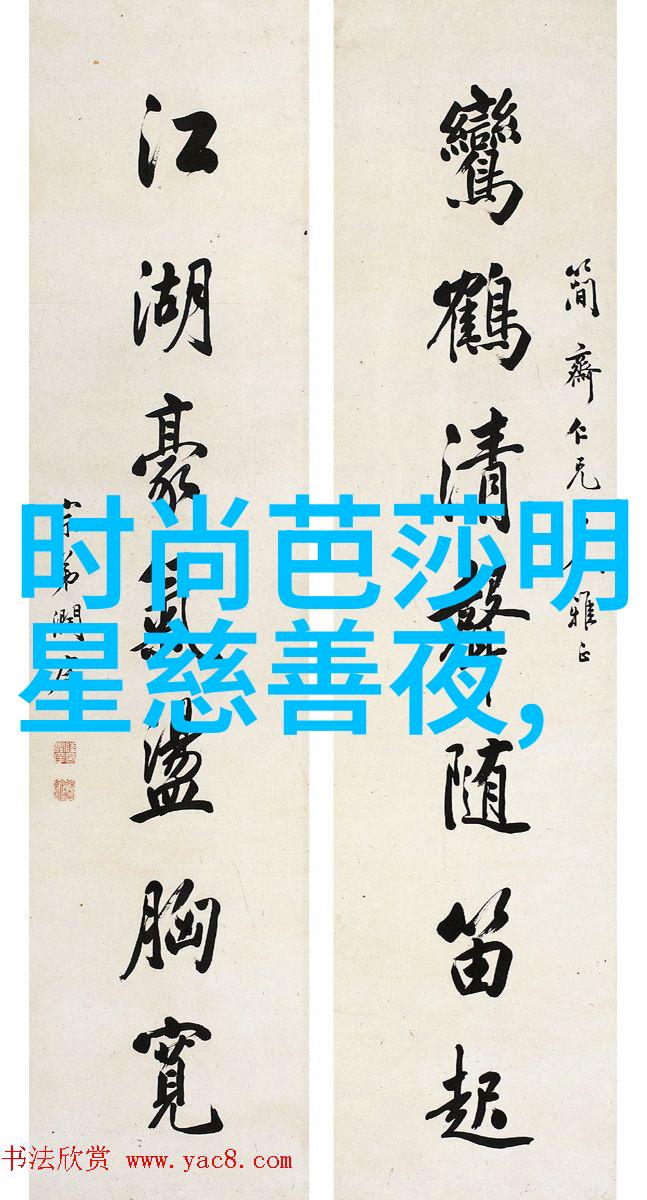 簡齋仁兄雅正
鸞鶴清聲随笛起
江湖豪氣盪胸寬
宗弟潤
时尚芭莎明
星慈善夜,
书法欣赏 www.yac8.com